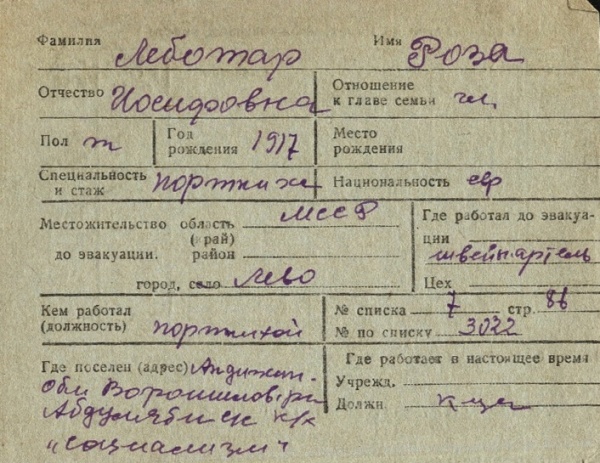 Фамилия Леботар Имя Роза
Отчество Иосифовна Отношение к главе семьи чл.
Пол ж Год рождения 1917 Место рождения
Специальность и стаж портниха Национальность евр
Местожительство до эвакуации. область (край) МССР
район
город, село Лево
Где работал до эвакуации швейн. артель
Цех
Кем работал (должность) портнихой
№ списка 7 стр. 86
№ по списку 3022
Где поселен (адрес) Андижан.
обл Ворошилов. р-н
Абдулябиск к/х
"социализм"
Где работает в настоящее время
Учрежд.
Должн.